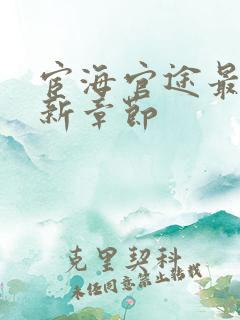 宦海官途最
新章节
克里契科
未经同意禁止转载